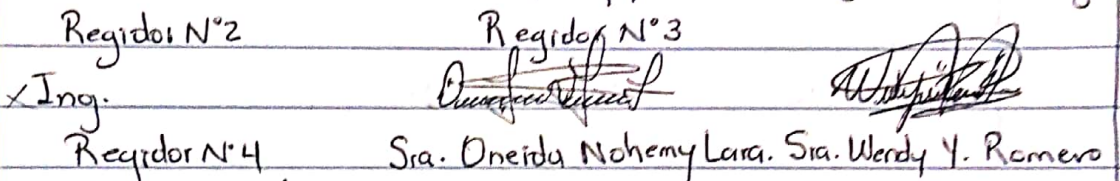 Regidor N°2 Regidor N°3
x Ing.
Regidor N°4 Sra. Oneida Nohemy Lara. Sra. Wendy Y. Romero